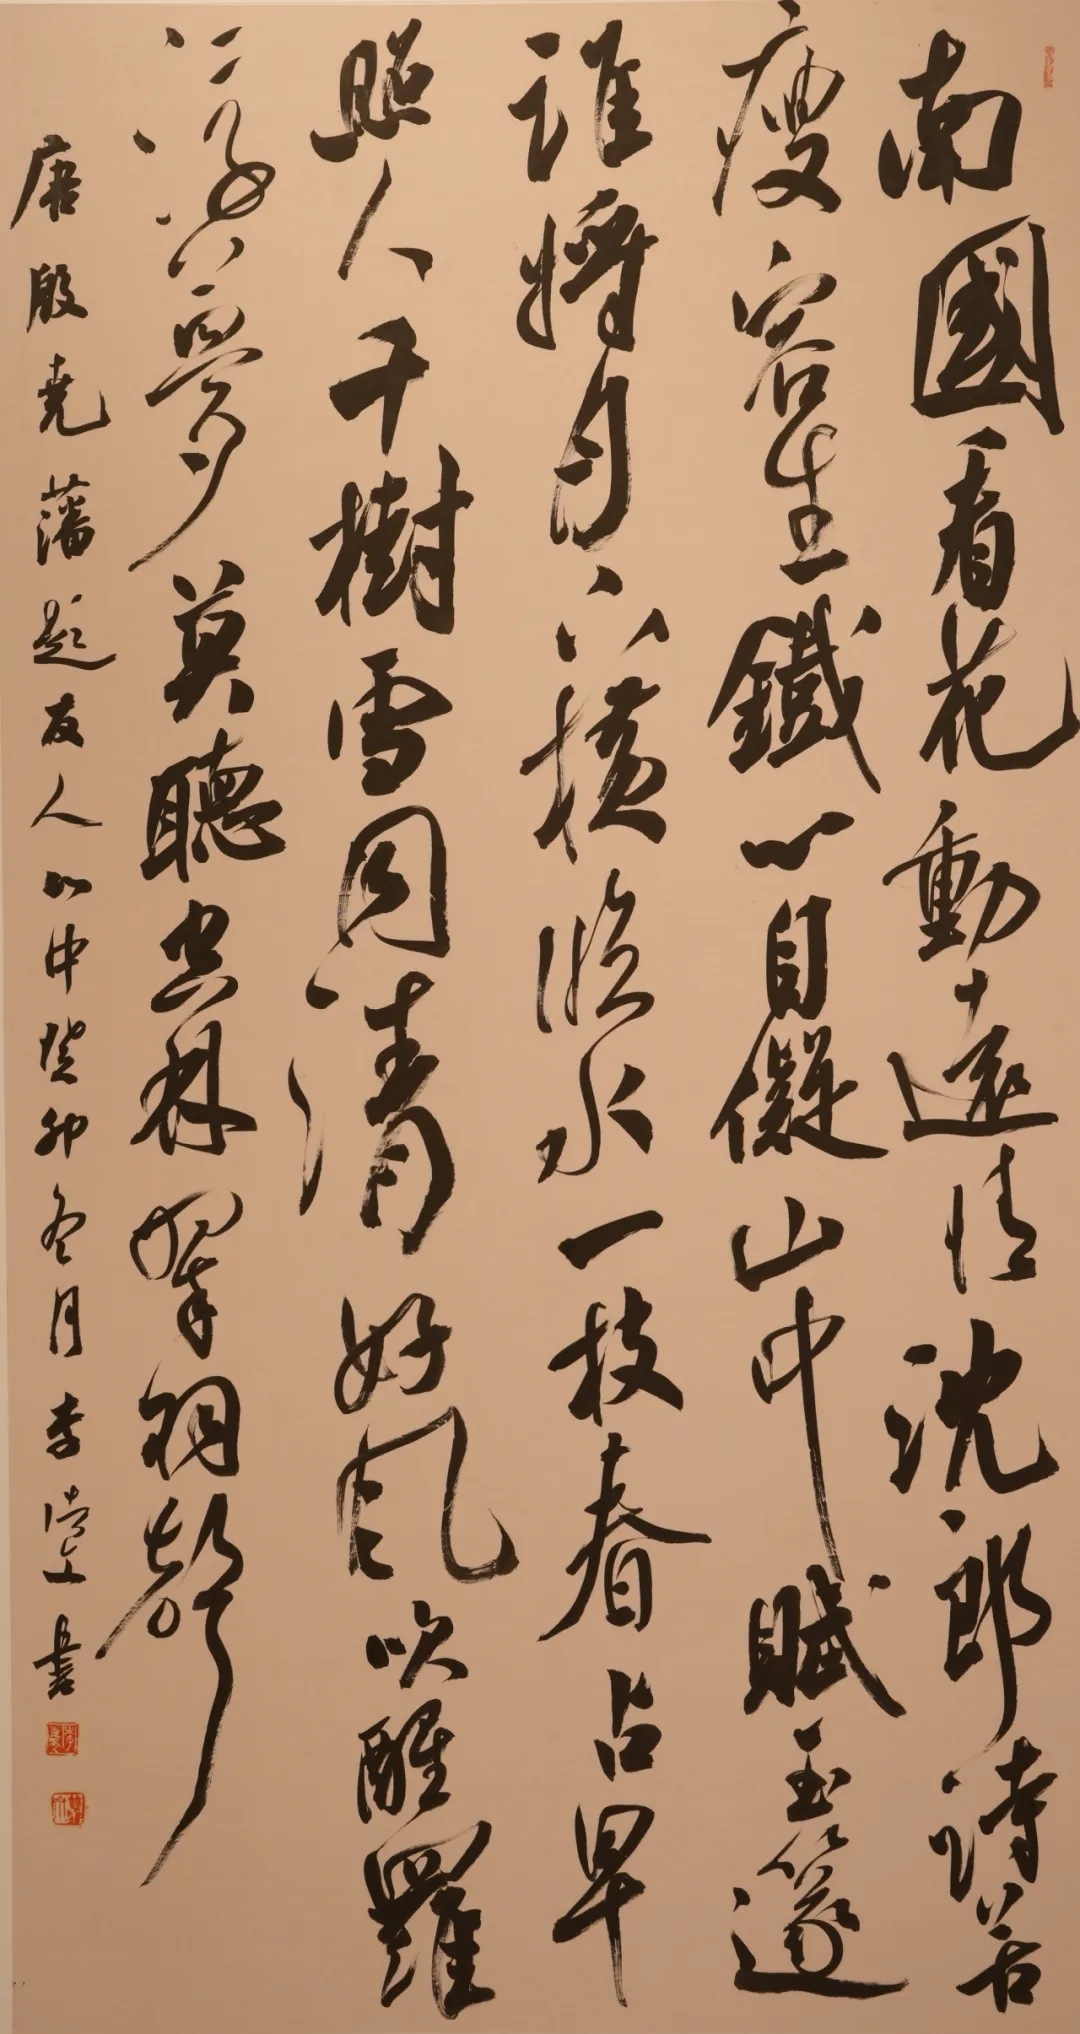 南國看花動遠情沈郎詩苦
瘦容生鐵心自儗山中賦玉篴
誰將月下橫臨水一枝春占早
照人千樹雪同清好風吹醒羅
浮夢莫聽空林翠羽聲
唐殷尧藩題友人山中癸卯冬月李書